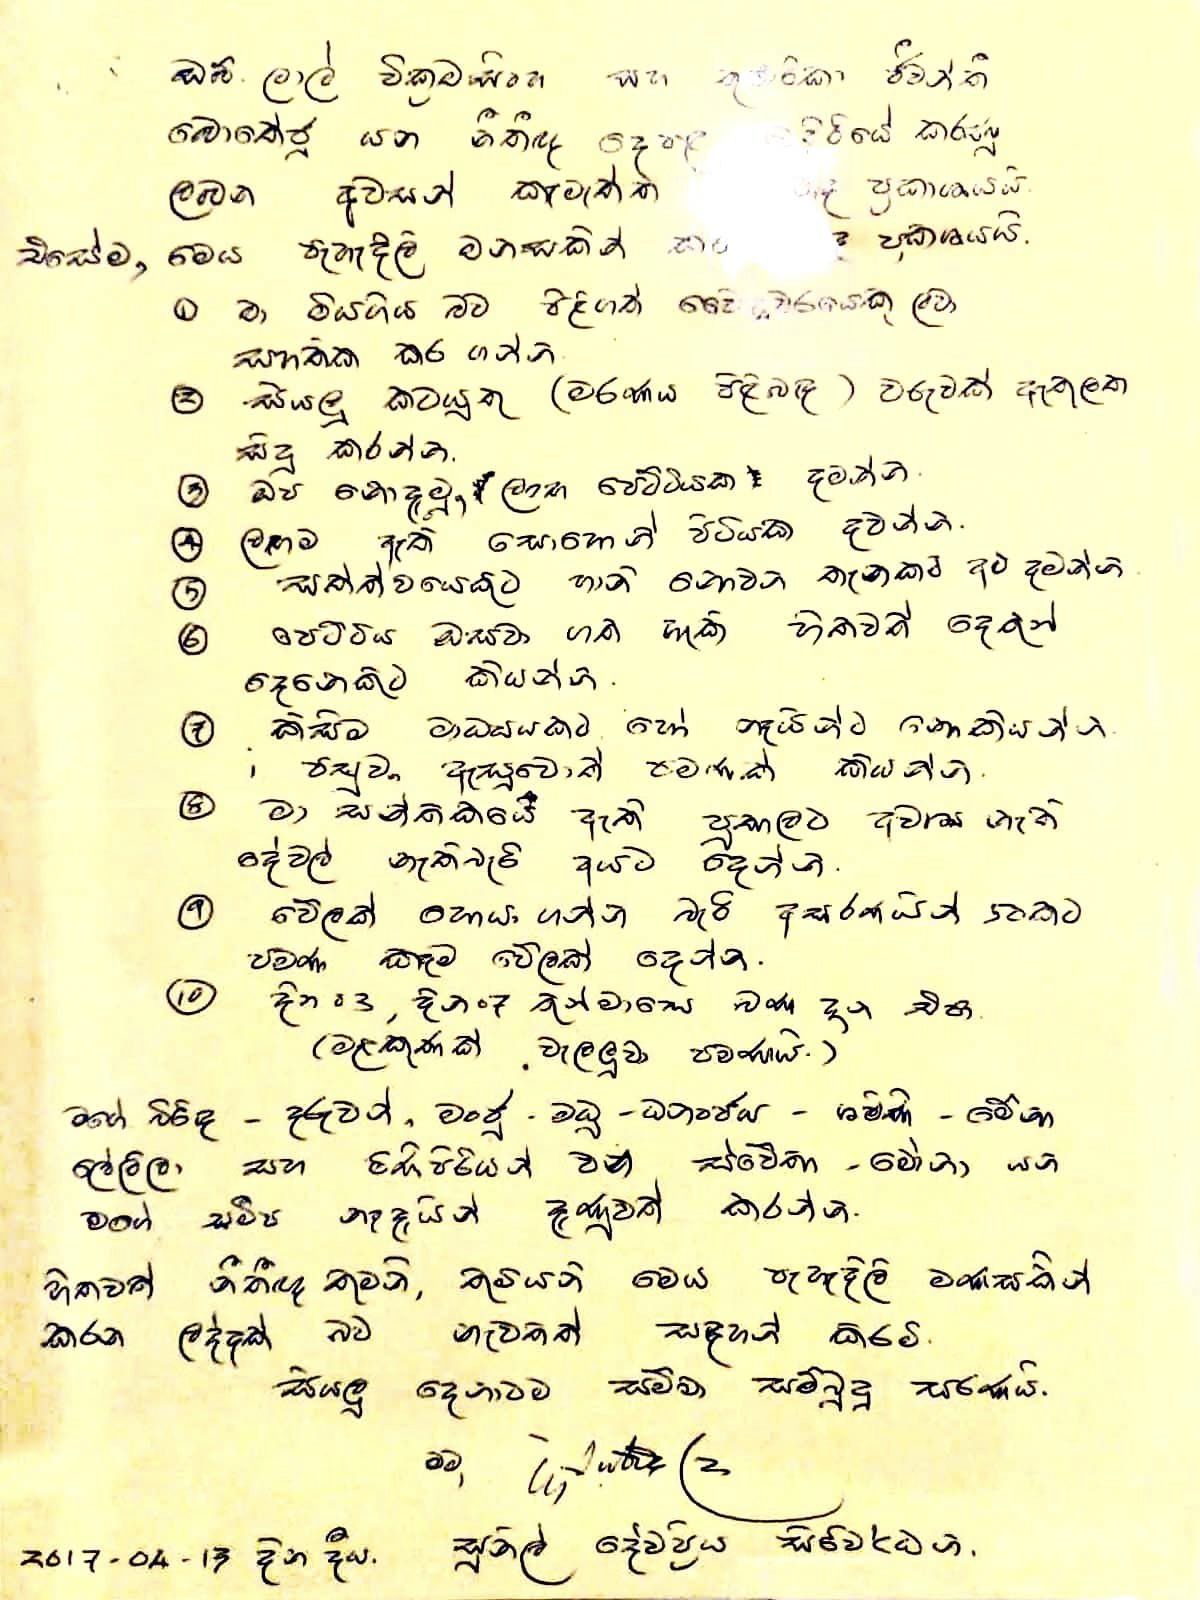 ඩබ්. ලාල් වික්‍රමසිංහ සහ කුමාරිකා ජීවන්ති
බොතේජු යන නීතිඥ දෙපළ ඉදිරියේ කරනු
ලබන අවසන් කැමැත්ත ප්‍රකාශයයි.
එසේම, මෙය පැහැදිලි මනසකින් කර ප්‍රකාශයයි.
① මා මියගිය බව පිළිගත් වෛද්‍යවරයෙකු ලවා
සහතික කර ගන්න.
② සියලු කටයුතු (මරණය පිළිබඳ) වරුවක් ඇතුලත
සිදු කරන්න.
③ ඔප නොදැමූ, ලාභ පෙට්ටියක දමන්න.
④ ලඟම ඇති සොහොන් පිටියක දවන්න.
⑤ සත්ත්වයෙකුට හානි නොවන තැනකට අළු දමන්න.
⑥ පෙට්ටිය ඔසවා ගත හැකි හිතවත් දෙතුන්
දෙනෙකුට කියන්න.
⑦ කිසිම මාධ්‍යයකට හෝ නෑයින්ට නොකියන්න.
පසුව ඇසුවොත් පමණක් කියන්න.
⑧ මා සන්තකයේ ඇති පුතාලට අවශ්‍ය නැති
දේවල් නැතිබැරි අයට දෙන්න.
⑨ වේලක් හොයා ගන්න බැරි අසරණයින් 50කට
පමණ කෑම වේලක් දෙන්න.
⑩ දින 03, දින 07 තුන්මාසෙ බණ දාන එපා.
(මළකුණක් වැලලුවා පමණයි.)
මගේ බිරිඳ - දරුවන්, මංජු - මධු - ධනංජය - ශම්මි - මේනා
ලේලිලා සහ මිණිපිරියන් වන ස්වේතා - මෝනා යන
මගේ සමීප නෑදෑයින් දැණුවත් කරන්න.
හිතවත් නීතීඥ තුමනි, තුමියනි මෙය පැහැදිලි මණසකින්
කරන ලද්දක් බව නැවතත් සඳහන් කරමි.
සියලු දෙනාටම සම්මා සම්බුදු සරණයි.
මම,
2017-04-13 දින දීය. සුනිල් දේවප්‍රිය සිරිවර්ධන.